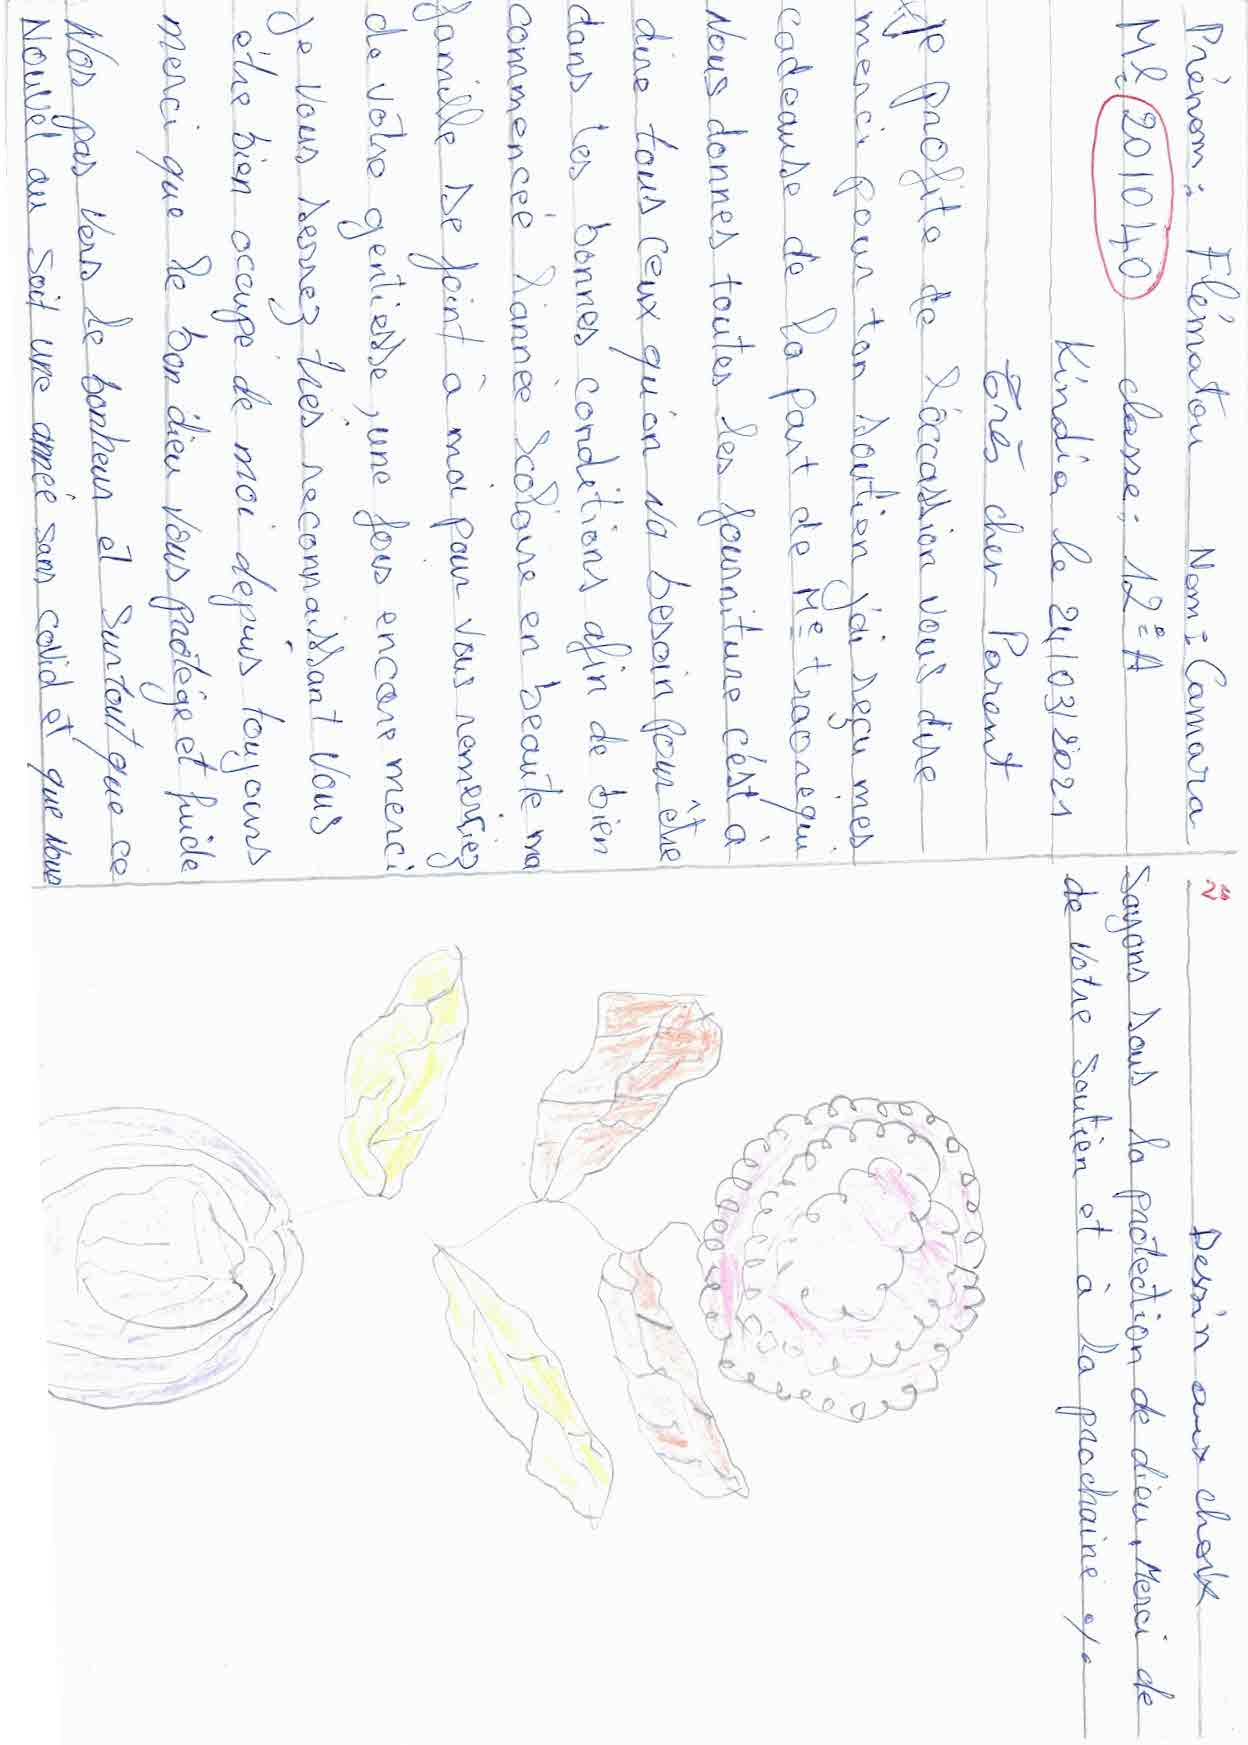 Prénom: Flématou Nom: Camara
Ml: 201040 classe: 12è A
Kindia le 24/03/2021
très cher Parent
Je profite de l'òccassion vous dire
merci pour ton soutien j'ai reçu mes
cadeause de la part de Me traore qui
Nous donnes toutes les fourniture c'ést à
dire tous ceux qu'on va besoin pour être
dans les bonnes conditions afin de bien
commencée l'année scolaire en beaute ma
famille se joint à moi pour vous remerçiez
de vôtre gentiesse, une fois encore merci
je vous serrez très reconnaissant vous
être bien occupé de moi depuis toujours
merci que le bon dieu vous protége et fuide
Nos pas vers le bonheur et surtout que ce
Nouvel an soit une année sans covid et que nous
2è
Dessin aux choix
Soyons sous la protection de dieu, Merci de
de votre soutien et à la prochaine %